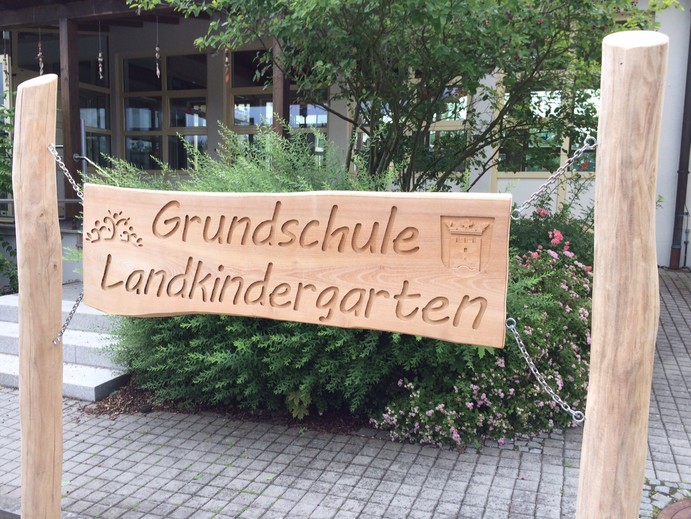 Grundschule
Landkindergarten